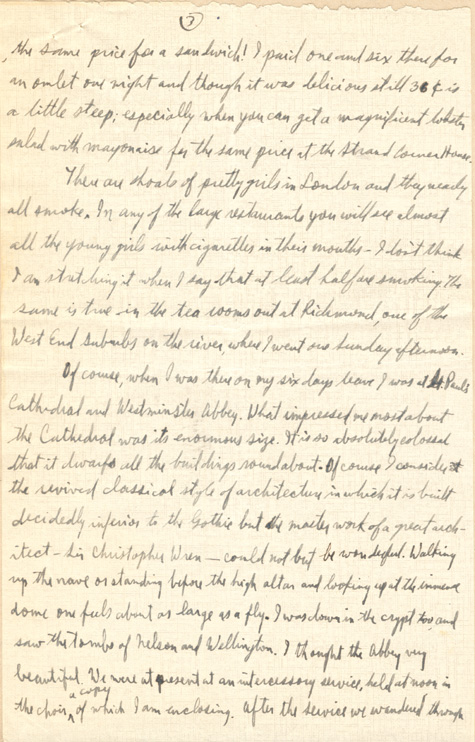 3
the same price for a sandwich! I paid one and six there for
an omlet one night and though it was delicious still 36¢ is
a little steep; especially when you can get a magnificent lobster
salad with mayonaise for the same price at the Strand Corner House.
There are shoals of pretty girls in London and they nearly
all smoke. In any of the large restaurants you will see almost
all the young girls with cigarettes in their mouths - I don't think
I am stretching it when I say that at least half are smoking. The
same is true in the tea rooms out at Richmond, one of the
West End suburbs on the river, where I went one Sunday afternoon.
Of course, when I was there on my six days leave I was at St. Pauls
Cathedral and Westminster Abbey. What impressed me most about
the Cathedral was its enormous size. It is so absolutely colossal
that it dwarfs all the buildings roundabout. Of course I consider
the revived classical style of architecture in which it is built
decidedly inferior to the Gothic but the master work of a great arch-
itect - Sir Christopher Wren - could not but be wonderful. Walking
up the nave or standing before the high altar and looking up at the immense
dome one feels about as large as a fly. I was down in the crypt too, and
saw the tombs of Nelson and Wellington. I thought the Abbey very
beautiful. We were at present at an intercessory service, held at noon in
the choir, a copy of which I am enclosing. After the service we wandered through